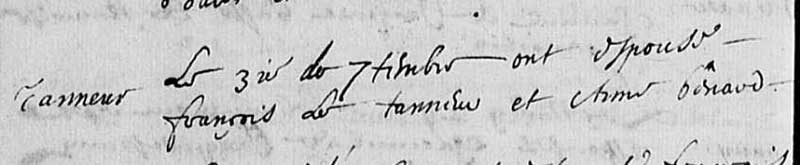 Tanneur Le 3ie de 7tembre ont espousé
françois Le tanneur et Anne bénard